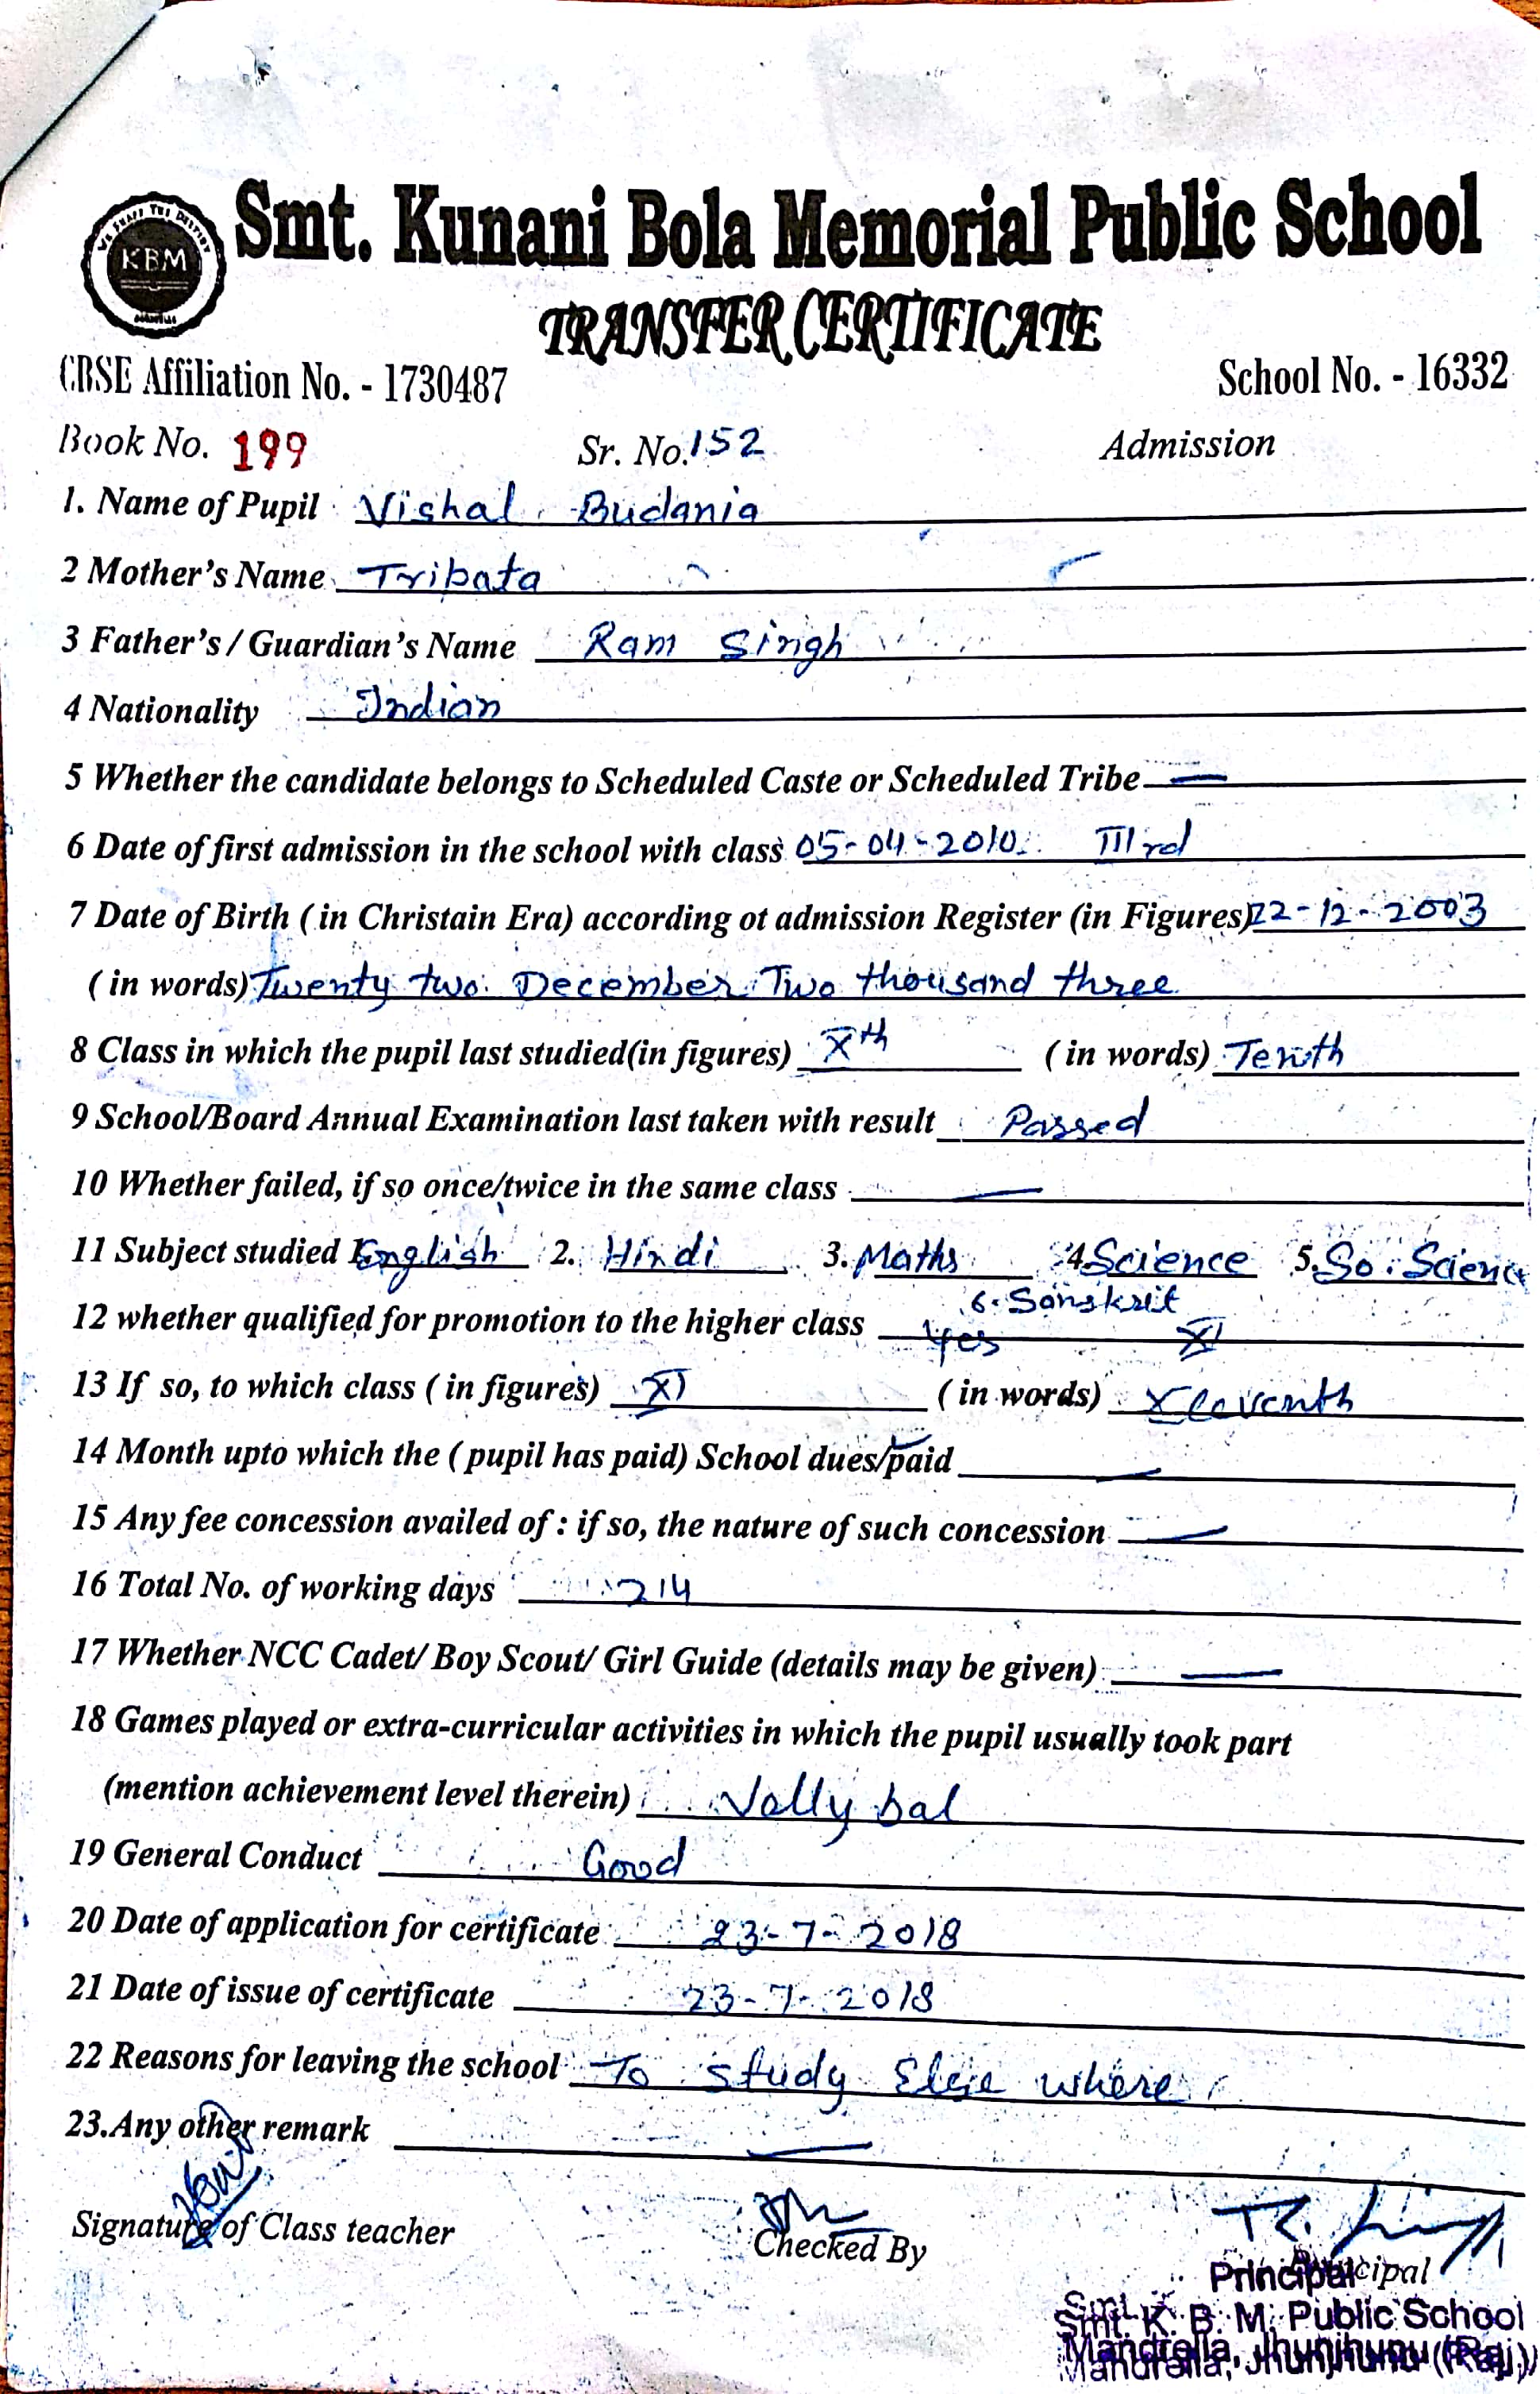 WE SHAPE THE DESTINY
KBM
Smt. Kunani Bola Memorial Public School
TRANSFER CERTIFICATE
CBSE Affiliation No. - 1730487 School No. - 16332
Book No. 199 Sr. No. 152 Admission
1. Name of Pupil Vishal Budania
2 Mother's Name Tripata
3 Father's / Guardian's Name Ram Singh
4 Nationality Indian
5 Whether the candidate belongs to Scheduled Caste or Scheduled Tribe —
6 Date of first admission in the school with class 05-04-2010 IIIrd
7 Date of Birth ( in Christain Era) according ot admission Register (in Figures) 22-12-2003
( in words) Twenty two December Two thousand three
8 Class in which the pupil last studied(in figures) Xth ( in words) Tenth
9 School/Board Annual Examination last taken with result Passed
10 Whether failed, if so once/twice in the same class —
11 Subject studied 1. English 2. Hindi 3. Maths 4. Science 5. So. Science
6. Sanskrit
12 whether qualified for promotion to the higher class Yes XI
13 If so, to which class ( in figures) XI ( in words) Xleventh
14 Month upto which the ( pupil has paid) School dues/paid —
15 Any fee concession availed of : if so, the nature of such concession —
16 Total No. of working days 214
17 Whether NCC Cadet/ Boy Scout/ Girl Guide (details may be given) —
18 Games played or extra-curricular activities in which the pupil usually took part
(mention achievement level therein) Volly bal
19 General Conduct Good
20 Date of application for certificate 23-7-2018
21 Date of issue of certificate 23-7-2018
22 Reasons for leaving the school To study Else where
23.Any other remark —
Signature of Class teacher Checked By Principal
Principal
Smt. K. B. M. Public School
Mandrella, Jhunjhunu (Raj.)